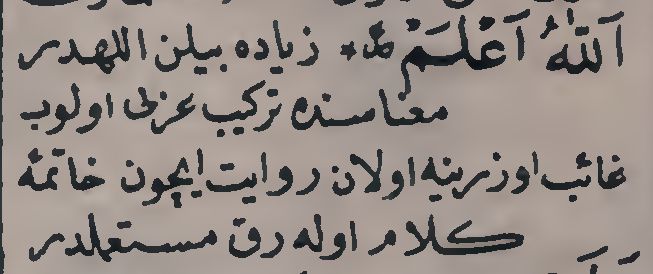 اَللّٰهُ اَعْلَمْ زیاده بیلن اللهدر
معناسنده تركیب عربی اولوب
غائب اوزرینه اولان روایت ایچون خاتمهٔ
كلام اوله رق مستعملدر